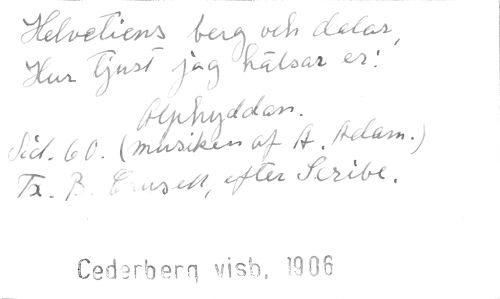 Helvetiens berg och dalar,
Hur ljust jag hälsar er!
Alphyddan.
Sid. 60. (musiken af A. Adam.)
Tx. B. Crusell, efter Scribe.
Cederberg visb. 1906